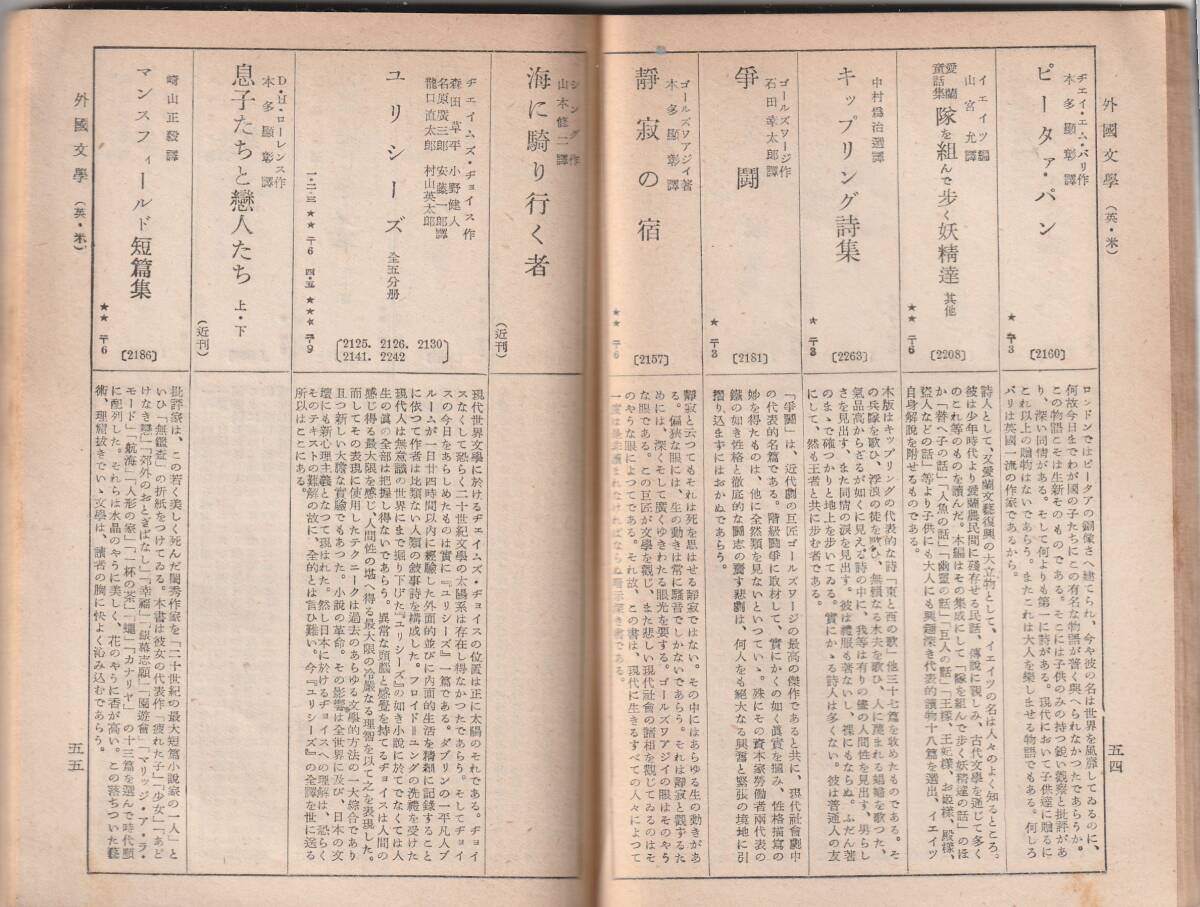 外國文學（英・米）
五四
ヂェイ・エム・バリ作
本多顯彰譯
ピータァ・パン
★ 〒3
〔2160〕
ロンドンではピータアの銅像さへ建てられ、今や彼の名は世界を風靡してゐるのに、
何故今日までわが國の子たちにこの有名な物語が普く與へられなかつたであらうか。
この物語こそは生新そのものである。そこには子供のみの持つ鋭い觀察と批評があ
り、深い同情がある。そして何よりも第一に詩がある。現代において子供達に贈るに
これ以上の贈物はないであらう。またこれは大人を樂しませる物語でもある。何しろ
バリは英國一流の作家であるから。
イェイツ編
山宮允譯
愛蘭童話集
隊を組んで步く妖精達 其他
★★ 〒6
〔2208〕
詩人として、又愛蘭文藝復興の大立物として、イェイツの名は人々のよく知るところ。
彼は少年時代より愛蘭農民間に殘存せる民話、傳說に親しみ、古代文學を通じて多く
のこれ等のものを讀んだ。本編はその集成にして「隊を組んで步く妖精達の話」のほ
か「替へ子の話」「人魚の話」「幽靈の話」「巨人の話」「王樣、王妃樣、お姬樣、殿樣、
盜人などの話」等より子供にも大人にも興趣深き代表的讀物十八篇を選出、イェイツ
自身解說を附せるものである。
中村爲治選譯
キップリング詩集
★ 〒3
〔2263〕
本版はキップリングの代表的な詩「東と西の歌」他三十七篇を收めたものである。そ
の兵隊を歌ひ、浮浪の徒を歌ひ、無賴なる水夫を歌ひ、人に蔑まれる娼婦を歌つた、
氣品高からざるが如くに見える詩の中に、我等は有りの儘の人間性を見出す、男らし
さを見出す、また同情の淚を見出す。彼は禮服も著ないし、裸にもならぬ。ふだん著
のまゝで確つかりと地上を步いてゐる。實にかゝる詩人は多くない。彼は普通人の友
にして、然も王者と共に步む者である。
ゴールズワージ作
石田幸太郎譯
爭鬪
★ 〒3
〔2181〕
「爭鬪」は、近代劇の巨匠ゴールズワージの最高の傑作であると共に、現代社會劇中
の代表的名篇である。階級鬪爭に取材して、實にかくの如く眞實を摑み、性格描寫の
妙を得たものは、他に全然類を見ないといつていゝ。殊にその資本家勞働者兩代表の
鐵の如き性格と徹底的な鬪志の齎す悲劇は、何人をも絕大なる興奮と緊張の境地に引
摺り込まずにはおかぬであらう。
ゴールズワアジイ著
本多顯彰譯
靜寂の宿
★★ 〒6
〔2157〕
靜寂と云つてもそれは死を思はせる靜寂ではない。その中にはあらゆる生の動きがあ
る。偏狹な眼には、生の動きは常に騷音でしかないであらう。それは靜寂と觀ずるた
めには、深くそして廣くゆきわたる眼光を要する。ゴールズワアジイの眼はそのやう
な眼である。この巨匠が文學を觀じ、また悲しい現代社會の諸相を觀じてゐるのはそ
のやうな眼によつてである。それ故、この書は、現代に生きるすべての人々によつて
シング作
山本修二譯
海に騎り行く者
（近刊）
ヂェイムズ・ヂョイス作
森田草平 小野健人
名原廣三郎 安藤一郎譯
龍口直太郎 村山英太郎
ユリシーズ 全五分册
一・二・三 ★★ 〒6 四・五 ★★★ 〒9
〔2125. 2126. 2130
2141. 2242〕
現代世界文學に於けるヂェイムズ・ヂョイスの位置は正に太陽のそれである。ヂョイ
スなくして恐らく二十世紀文學の太陽系は存在し得なかつたであらう。そしてヂョイ
スの今日をあらしめたものは實に『ユリシーズ』一篇である。ダブリンの一平凡人ブ
ルームが一日廿四時間以内に經驗した外面的並びに内面的生活を精細に記錄すること
に依つて作者は比類ない人類の敍事詩を構成した。フロイド＝ユングの洗禮を受けた
現代人は無意識の世界にまで掘り下げた『ユリシーズ』の如き小說に於てでなくては人
生の眞の全部は把握し得ないであらう。異常な頭腦と感覺を持てるヂョイスは人間の
感じ得る最大限を感じ、人間性の堪へ得る最大限の冷嚴なる理智を以て之を表現した。
而してその表現に使用したテクニークは過去のあらゆる文學的方法の一大綜合であり
且つ新しい大膽な實驗でもあつた。小說の革命。その影響は全世界に及び、日本の文
壇にも新心理主義となつて現はれた。然し日本に於けるヂョイスへの理解は、恐らく
そのテキストの難解の故に、全的とは言ひ難い。今『ユリシーズ』の全譯を世に送る
所以はここにある。
D・H・ローレンス作
本多顯彰譯
息子たちと戀人たち 上・下
（近刊）
崎山正毅譯
マンスフィールド短篇集
★★ 〒6
〔2186〕
批評家は、この若く美しく死んだ閨秀作家を「二十世紀の最大短篇小說家の一人」と
いひ「無鑑査」の折紙をつけてゐる。本書は彼女の代表作「疲れた子」「少女」「あど
けなき戀」「郊外のおとぎばなし」「幸福」「銀幕志願」「園遊會」「マリッジ・ア・ラ・
モード」「航海」「人形の家」「一杯の茶」「蠅」「カナリヤ」の十三篇を選んで時代順
に配列した。それらは水晶のやうに美しく、花のやうに香が高い。この落ちついた藝
術、理窟拔きでいゝ文學は、讀者の胸に快よく沁み込むであらう。
外國文學（英・米）
五五